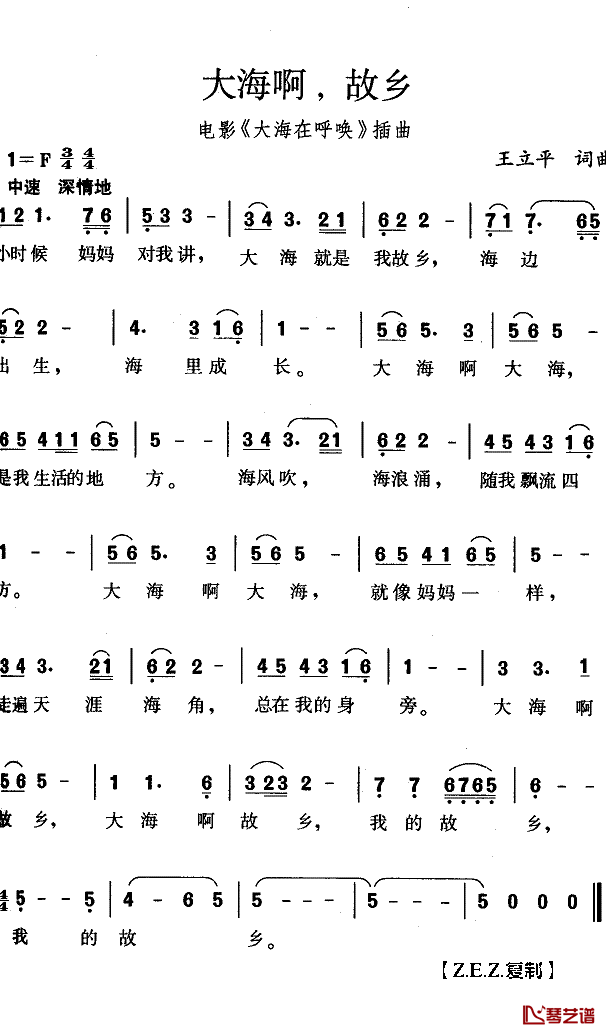 大海啊，故乡
电影《大海在呼唤》插曲
1=F 3/4 4/4
王立平 词曲
中速 深情地
1 2 1. 7 6 | 5 3 3 - | 3 4 3. 2 1 | 6 2 2 - | 7 1 7. 6 5
小时候 妈妈 对我讲， 大 海 就是 我故乡， 海 边
5 2 2 - | 4. 3 1 6 | 1 - - | 5 6 5. 3 | 5 6 5 -
出 生， 海 里 成 长。 大 海 啊 大 海，
6 5 4 1 1 6 5 | 5 - - | 3 4 3. 2 1 | 6 2 2 - | 4 5 4 3 1 6
是我 生活的地 方。 海风吹， 海浪涌， 随我飘流四
1 - - | 5 6 5. 3 | 5 6 5 - | 6 5 4 1 6 5 | 5 - -
方。 大 海 啊 大 海， 就像妈妈一 样，
3 4 3. 2 1 | 6 2 2 - | 4 5 4 3 1 6 | 1 - - | 3 3. 1
走遍 天 涯 海 角， 总在我的身 旁。 大 海 啊
5 6 5 - | 1 1. 6 | 3 2 3 2 - | 7 7 6 7 6 5 | 6 - -
故 乡， 大 海 啊 故 乡， 我 的 故 乡，
4/4 5 - - 5 | 4 - 6 5 | 5 - - - | 5 - - - | 5 0 0 0
我 的 故 乡。
【Z.E.Z.复制】
琴艺谱